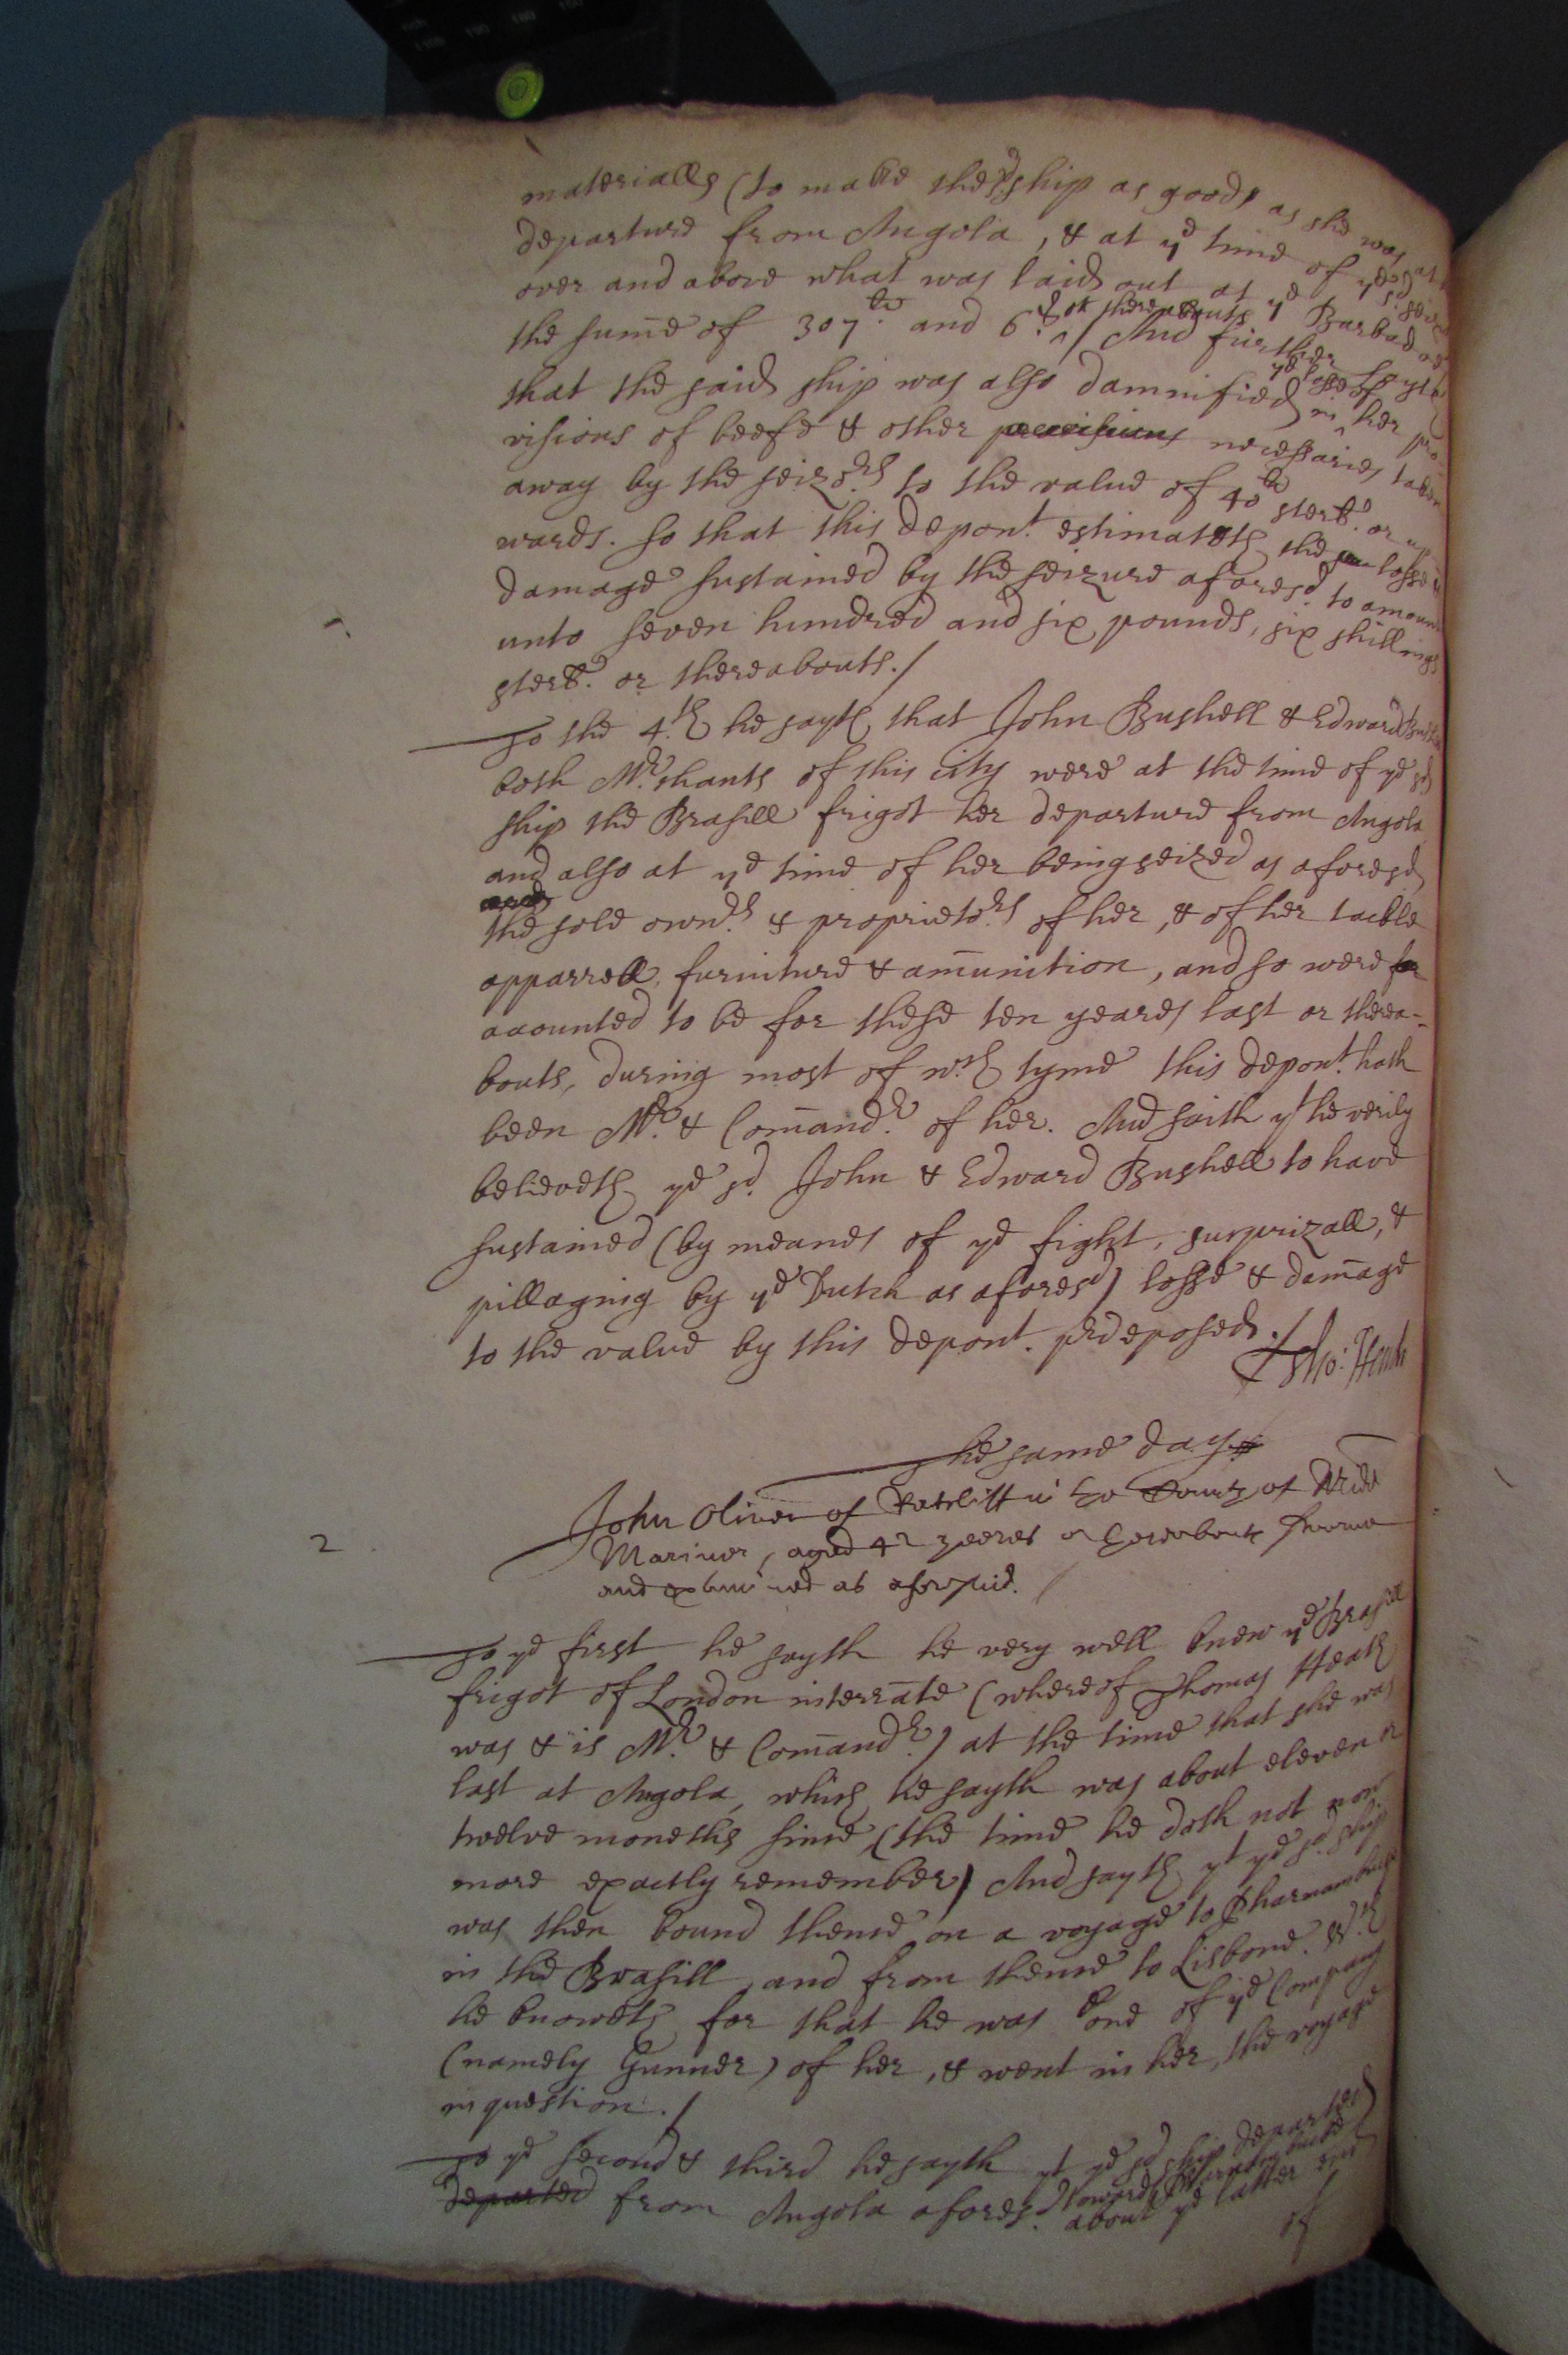 materialls (to make the sd ship as good as she was at
departure from Angola, & at ye time of ye sd
over and above what was laid out at ye Barbadoes
the sume of 307li. and 6s. or thereabouts / And further sayth
that the said ship was also damnified in ye losse of her pro-
visions of beefe & other provisions necessaries taken
away by the seizors to the value of 40li sterl. or
wards. So that this depont. estimateth the losse &
damage sustained by the seizure aforesd. to amount
unto seven hundred and six pounds, six shillings
sterl. or thereabouts./
To the 4.th he sayth that John Bushell & Edward Bushell
both Mr.chants of this city were at the time of ye sd
ship the Brasill frigot her departure from Angola
and also at ye time of her being seized as aforesd
and
the sole ownrs. & proprietors. of her, & of her tackle
apparrell, furniture & amunition, and so were
accounted to be for these ten yeares last or therea-
bouts, during most of wch. tyme this depont. hath
been Mr. & Comandr. of her. And saith yt he verily
believeth ye sd. John & Edward Bushell to have
sustained (by meanes of ye fight, surprizall, &
pillaging by ye Dutch as aforesd) losse & damage
to the value by this depont. prdeposed./
Tho: Heath
The same day
2.
John Oliver of Ratcliff in the County of Midd
Mariner, aged 42 yeeres or thereabouts sworne
and examined as aforesaid.
To ye first he sayth he very well knew ye Brasill
frigot of London interrate (whereof Thomas Heath
was & is Mr. & Comandr.) at the time that she was
last at Angola, which he sayth was about eleven or
twelve moneths since, (the time he doth not now
more exactly remember) And sayth yt ye sd. ship
was then bound thence on a voyage to Pharnambuck
in the Brasill, and from thence to Lisbone. Wch.
he knoweth for that he was one of ye Company
(namely Gunner) of her, & went in her, the voyage
in question./
To ye second & third he sayth yt ye sd ship departed
departed from Angola aforesd. towards Pharnambucke about ye latter end
of